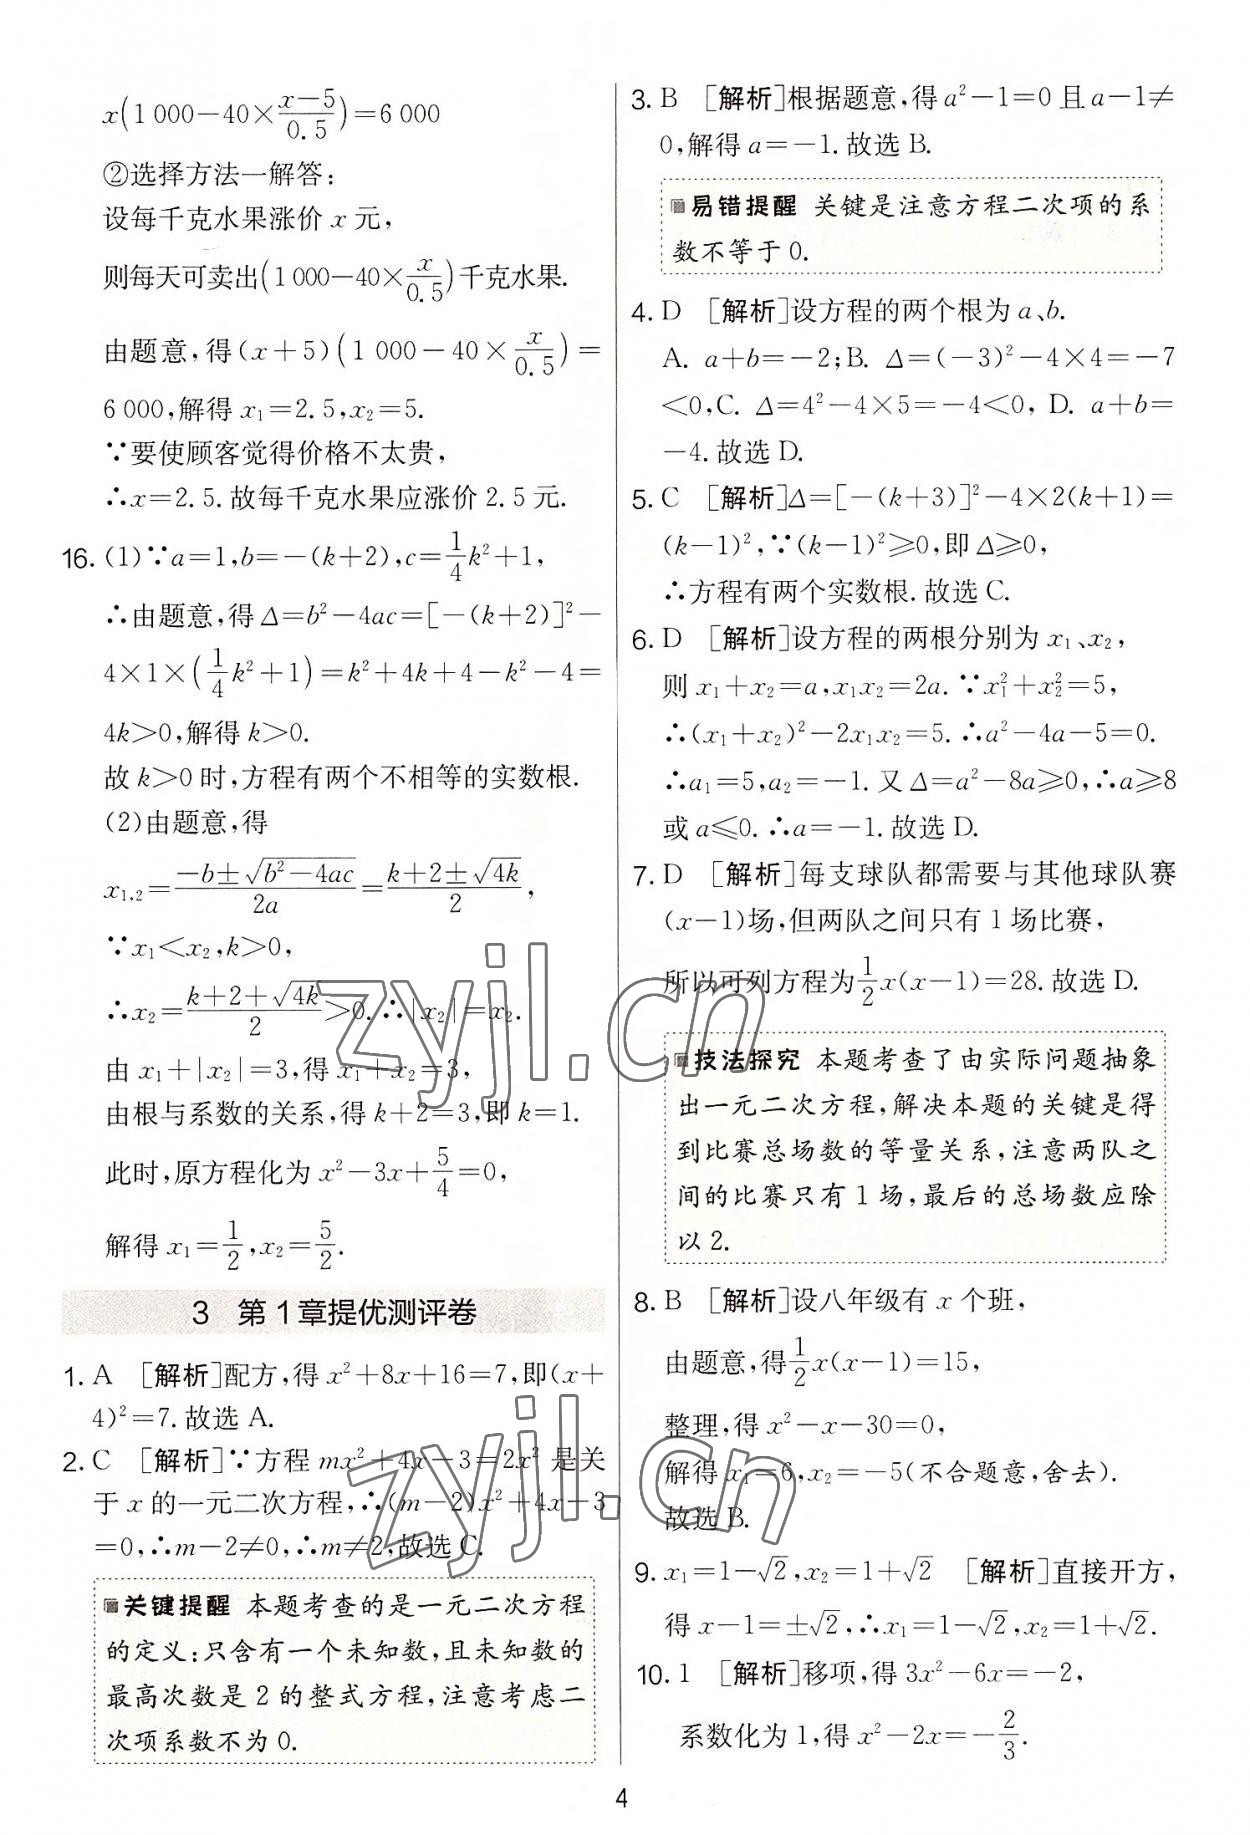 x(1 000−40×(x−5)/0.5)=6 000
②选择方法一解答:
设每千克水果涨价 x 元,
则每天可卖出(1 000−40×x/0.5)千克水果.
由题意,得(x+5)(1 000−40×x/0.5)=
6 000,解得 x₁=2.5,x₂=5.
∵要使顾客觉得价格不太贵,
∴x=2.5.故每千克水果应涨价 2.5 元.
16. (1)∵a=1,b=−(k+2),c=1/4k²+1,
∴由题意,得 Δ=b²−4ac=[−(k+2)]²−
4×1×(1/4k²+1)=k²+4k+4−k²−4=
4k>0,解得 k>0.
故 k>0 时,方程有两个不相等的实数根.
(2)由题意,得
x₁,₂=(−b±√(b²−4ac))/2a=(k+2±√4k)/2,
∵x₁<x₂,k>0,
∴x₂=(k+2+√4k)/2>0.∴|x₂|=x₂.
由 x₁+|x₂|=3,得 x₁+x₂=3,
由根与系数的关系,得 k+2=3,即 k=1.
此时,原方程化为 x²−3x+5/4=0,
解得 x₁=1/2,x₂=5/2.
3 第1章提优测评卷
1. A [解析]配方,得 x²+8x+16=7,即(x+
4)²=7.故选 A.
2. C [解析]∵方程 mx²+4x−3=2x² 是关
于 x 的一元二次方程,∴(m−2)x²+4x−3
=0,∴m−2≠0,∴m≠2,故选 C.
关键提醒 本题考查的是一元二次方程
的定义:只含有一个未知数,且未知数的
最高次数是 2 的整式方程,注意考虑二
次项系数不为 0.
3. B [解析]根据题意,得 a²−1=0 且 a−1≠
0,解得 a=−1.故选 B.
易错提醒 关键是注意方程二次项的系
数不等于 0.
4. D [解析]设方程的两个根为 a、b.
A. a+b=−2;B. Δ=(−3)²−4×4=−7
<0,C. Δ=4²−4×5=−4<0, D. a+b=
−4.故选 D.
5. C [解析]Δ=[−(k+3)]²−4×2(k+1)=
(k−1)²,∵(k−1)²≥0,即 Δ≥0,
∴方程有两个实数根.故选 C.
6. D [解析]设方程的两根分别为 x₁、x₂,
则 x₁+x₂=a,x₁x₂=2a.∵x₁²+x₂²=5,
∴(x₁+x₂)²−2x₁x₂=5.∴a²−4a−5=0.
∴a₁=5,a₂=−1.又 Δ=a²−8a≥0,∴a≥8
或 a≤0.∴a=−1.故选 D.
7. D [解析]每支球队都需要与其他球队赛
(x−1)场,但两队之间只有 1 场比赛,
所以可列方程为1/2x(x−1)=28.故选 D.
技法探究 本题考查了由实际问题抽象
出一元二次方程,解决本题的关键是得
到比赛总场数的等量关系,注意两队之
间的比赛只有 1 场,最后的总场数应除
以 2.
8. B [解析]设八年级有 x 个班,
由题意,得1/2x(x−1)=15,
整理,得 x²−x−30=0,
解得 x₁=6,x₂=−5(不合题意,舍去).
故选 B.
9. x₁=1−√2,x₂=1+√2 [解析]直接开方,
得 x−1=±√2,∴x₁=1−√2,x₂=1+√2.
10. 1 [解析]移项,得 3x²−6x=−2,
系数化为 1,得 x²−2x=−2/3.
4
zyjl.cn
zyjl.cn